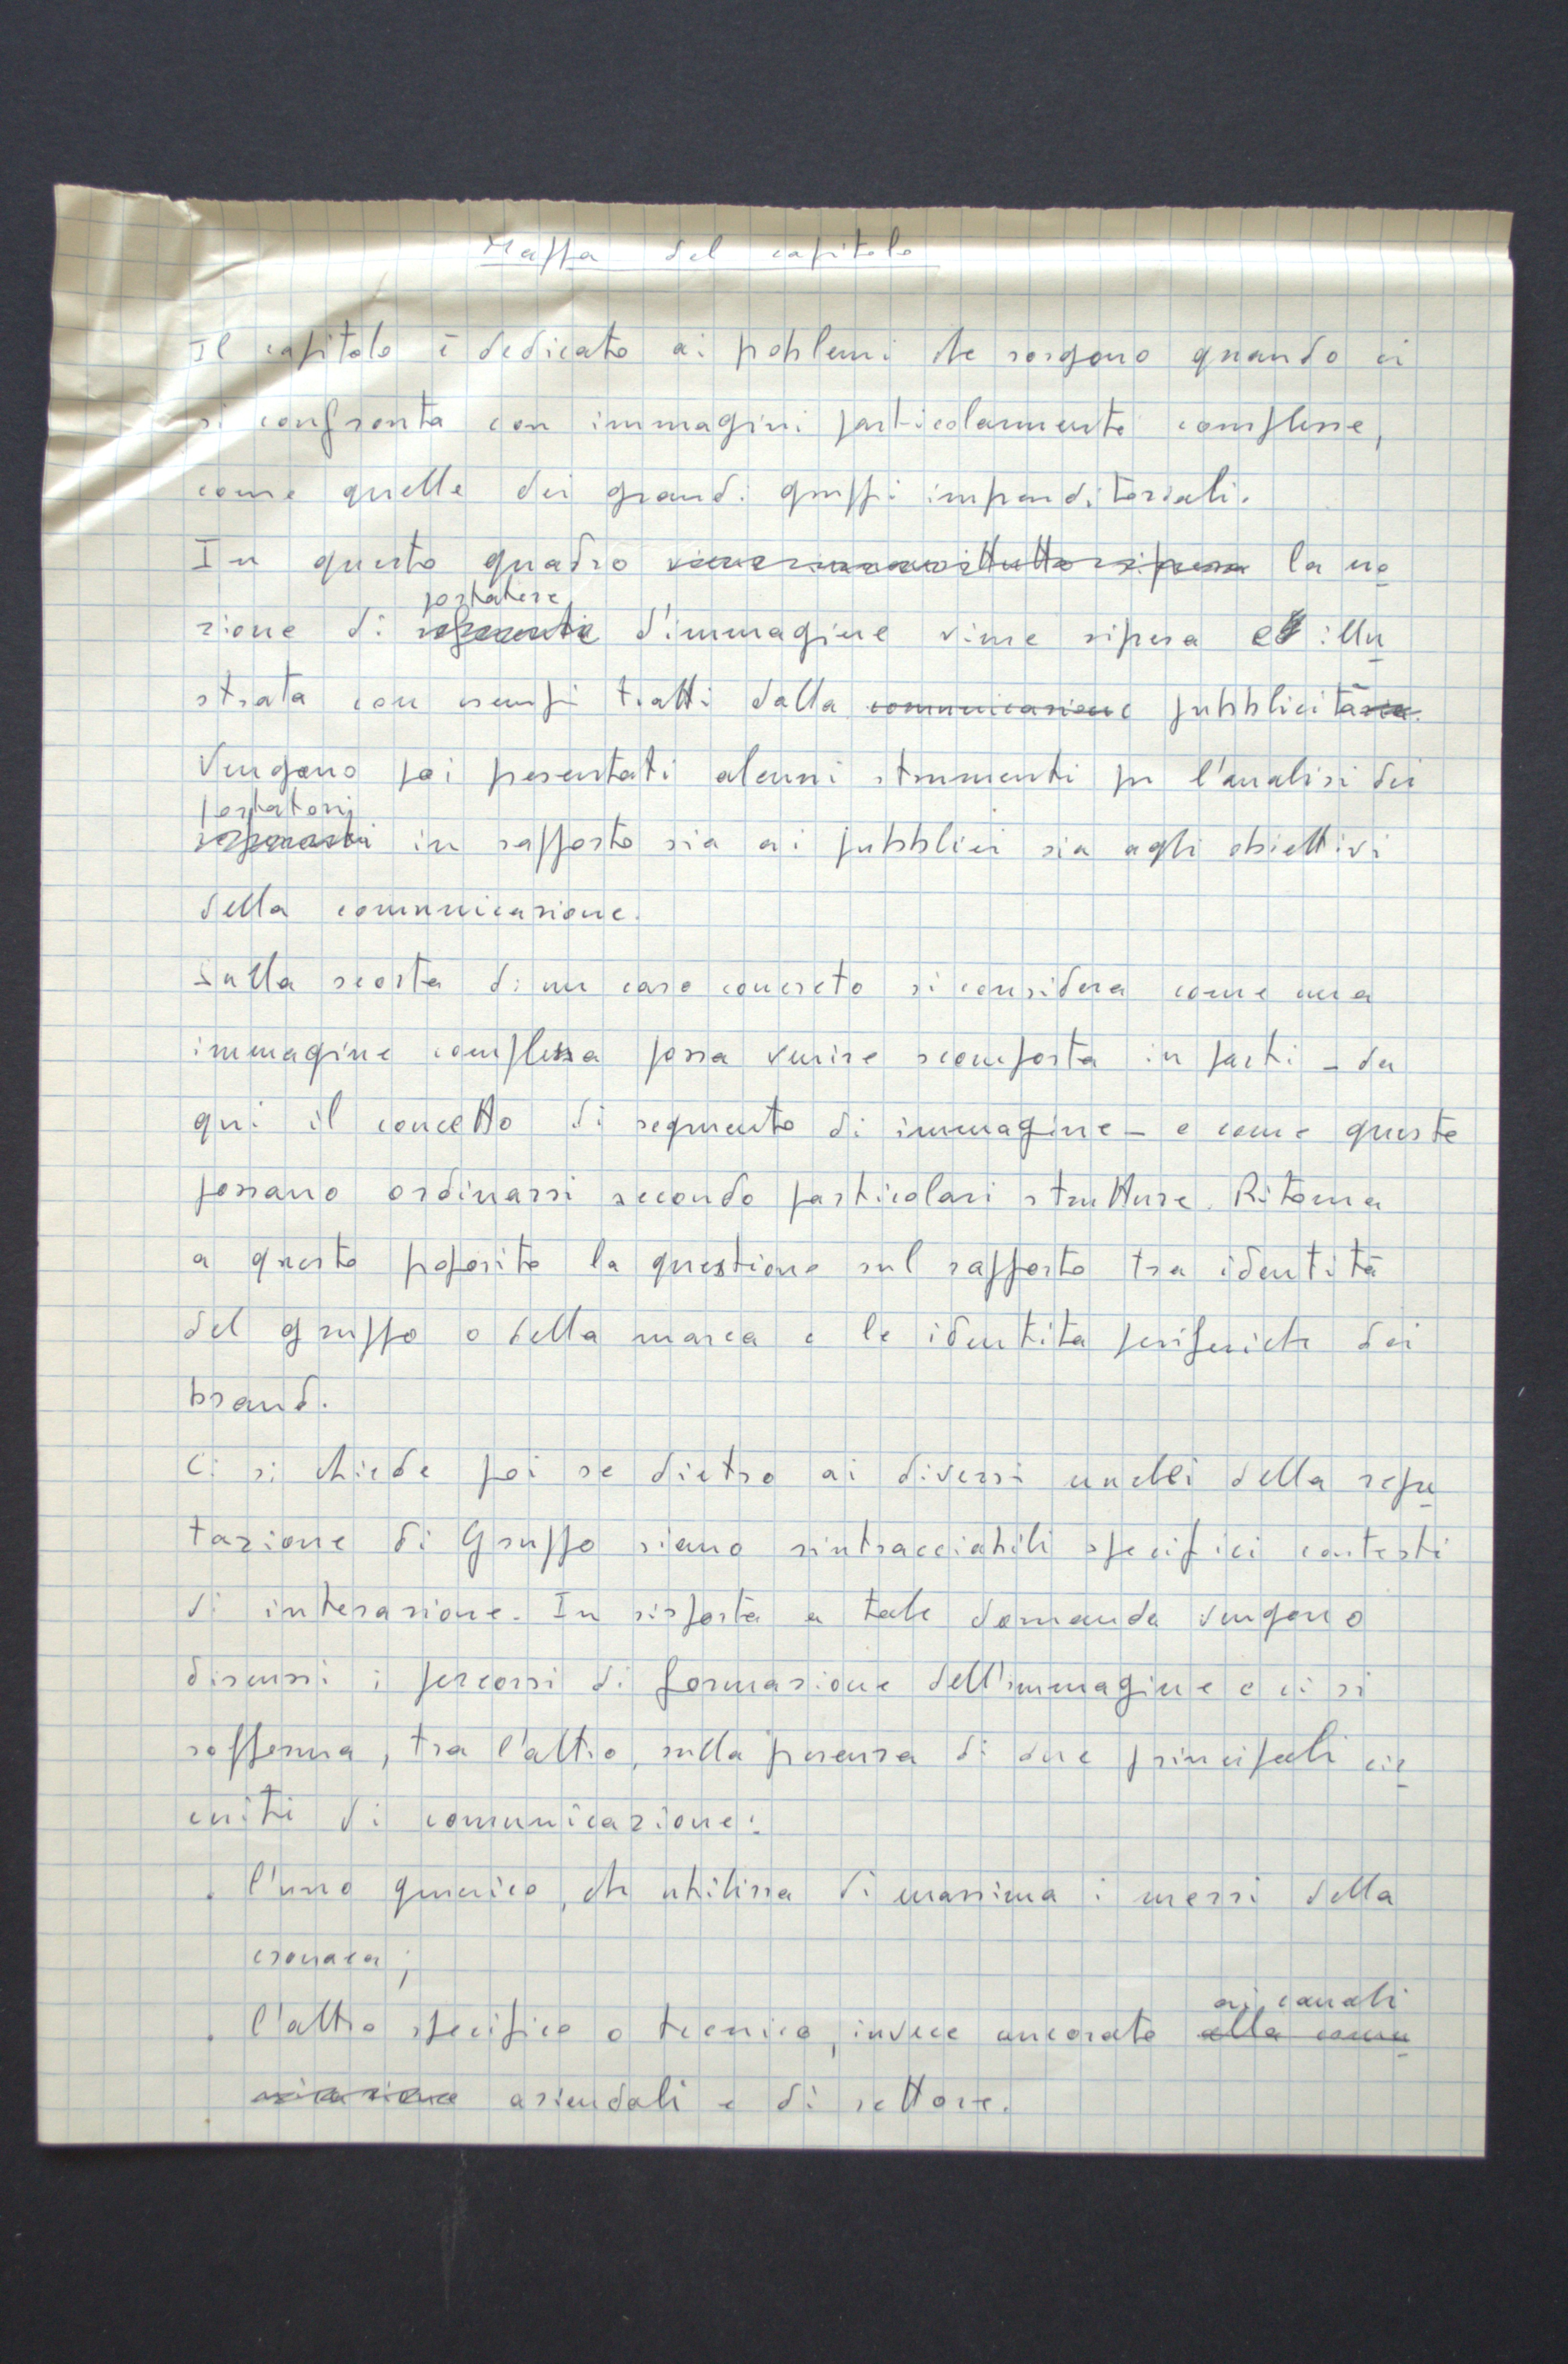 Mappa del capitolo
Il capitolo è dedicato ai problemi che sorgono quando ci
si confronta con immagini particolarmente complesse,
come quelle dei grandi gruppi imprenditoriali.
In questo quadro viene innanzitutto ripresa la no
zione di portatore d'immagine viene ripresa e illu
strata con esempi tratti dalla comunicazione pubblicitaria.
Vengono poi presentati alcuni strumenti per l'analisi dei
portatori in rapporto sia ai pubblici sia agli obiettivi
della comunicazione.
Sulla scorta di un caso concreto si considera come una
immagine complessa possa venire scomposta in parti – da
qui il concetto di segmento di immagine – e come queste
possano ordinarsi secondo particolari strutture. Ritorna
a questo proposito la questione sul rapporto tra identità
del gruppo o della marca e le identità periferiche dei
brand.
Ci si chiede poi se dietro ai diversi anelli della repu
tazione di Gruppo siano rintracciabili specifici contesti
di interazione. In risposta a tale domanda vengono
discussi i percorsi di formazione dell'immagine e ci si
sofferma, tra l'altro, sulla presenza di due principali cir
cuiti di comunicazione:
. l'uno generico, che utilizza di massima i mezzi della
cronaca;
ai canali
. l'altro specifico o tecnico, invece ancorato alla comu
nicazione aziendali e di settore.